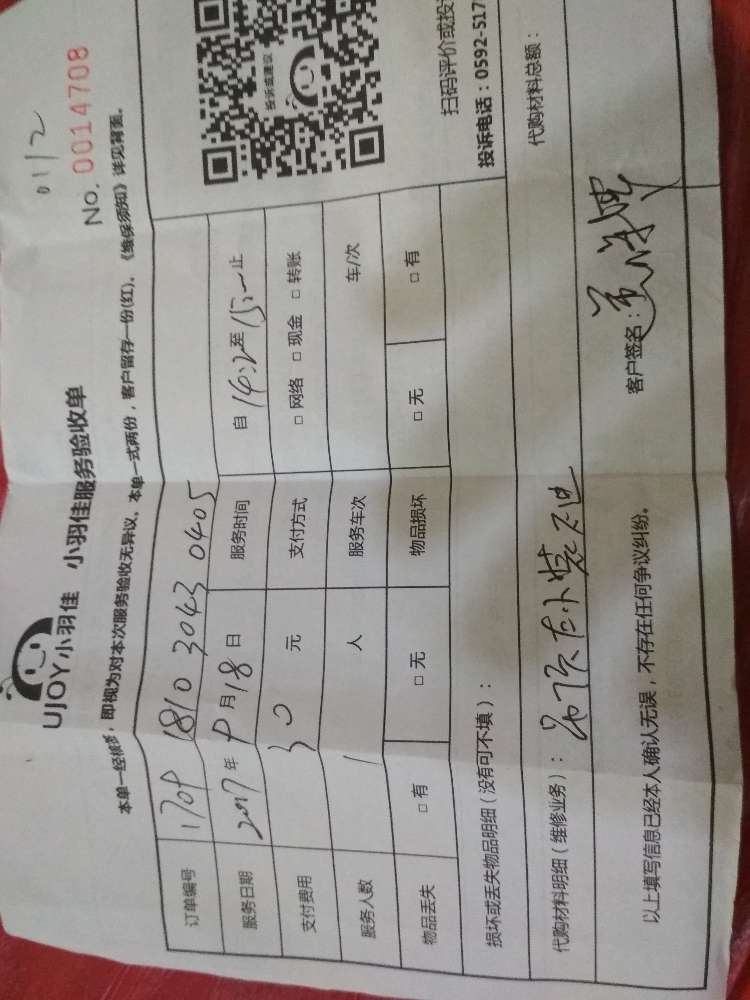 0112
No. 0014708
UJOY小羽佳 小羽佳服务验收单
本单一经核签，即视为对本次服务验收无异议。本单一式两份，客户留存一份(红)。《维保须知》详见背面。
订单编号 1709 1810 3043 0405
服务日期 2017年 9月18日 服务时间 自 14:2 至 15:- 止
支付费用 30 元 支付方式 □ 网络 □ 现金 □ 转账
服务人数 1 人 服务车次 车/次
物品丢失 □ 有 □ 无 物品损坏 □ 无 □ 有
投诉或建议
扫码评价或投
投诉电话：0592-517
损坏或丢失物品明细（没有可不填）：
代购材料明细（维修业务）：
代购材料总额：
以上填写信息已经本人确认无误，不存在任何争议纠纷。
客户签名：